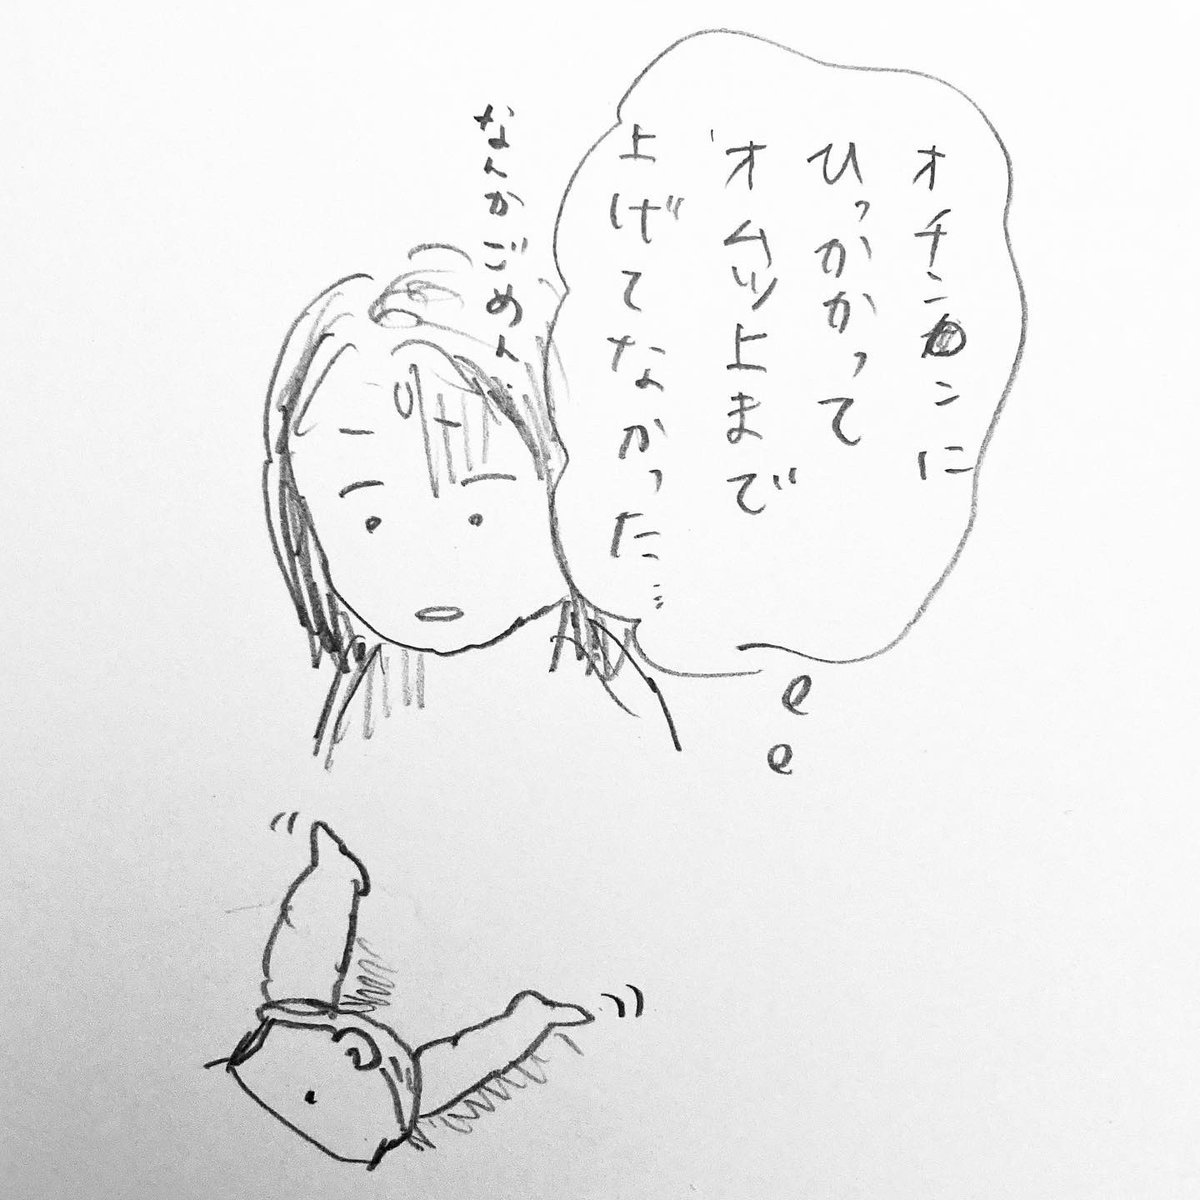 オチンカンに
ひっかかって
オムツ上まで
上げてなかった…
なんかごめん.